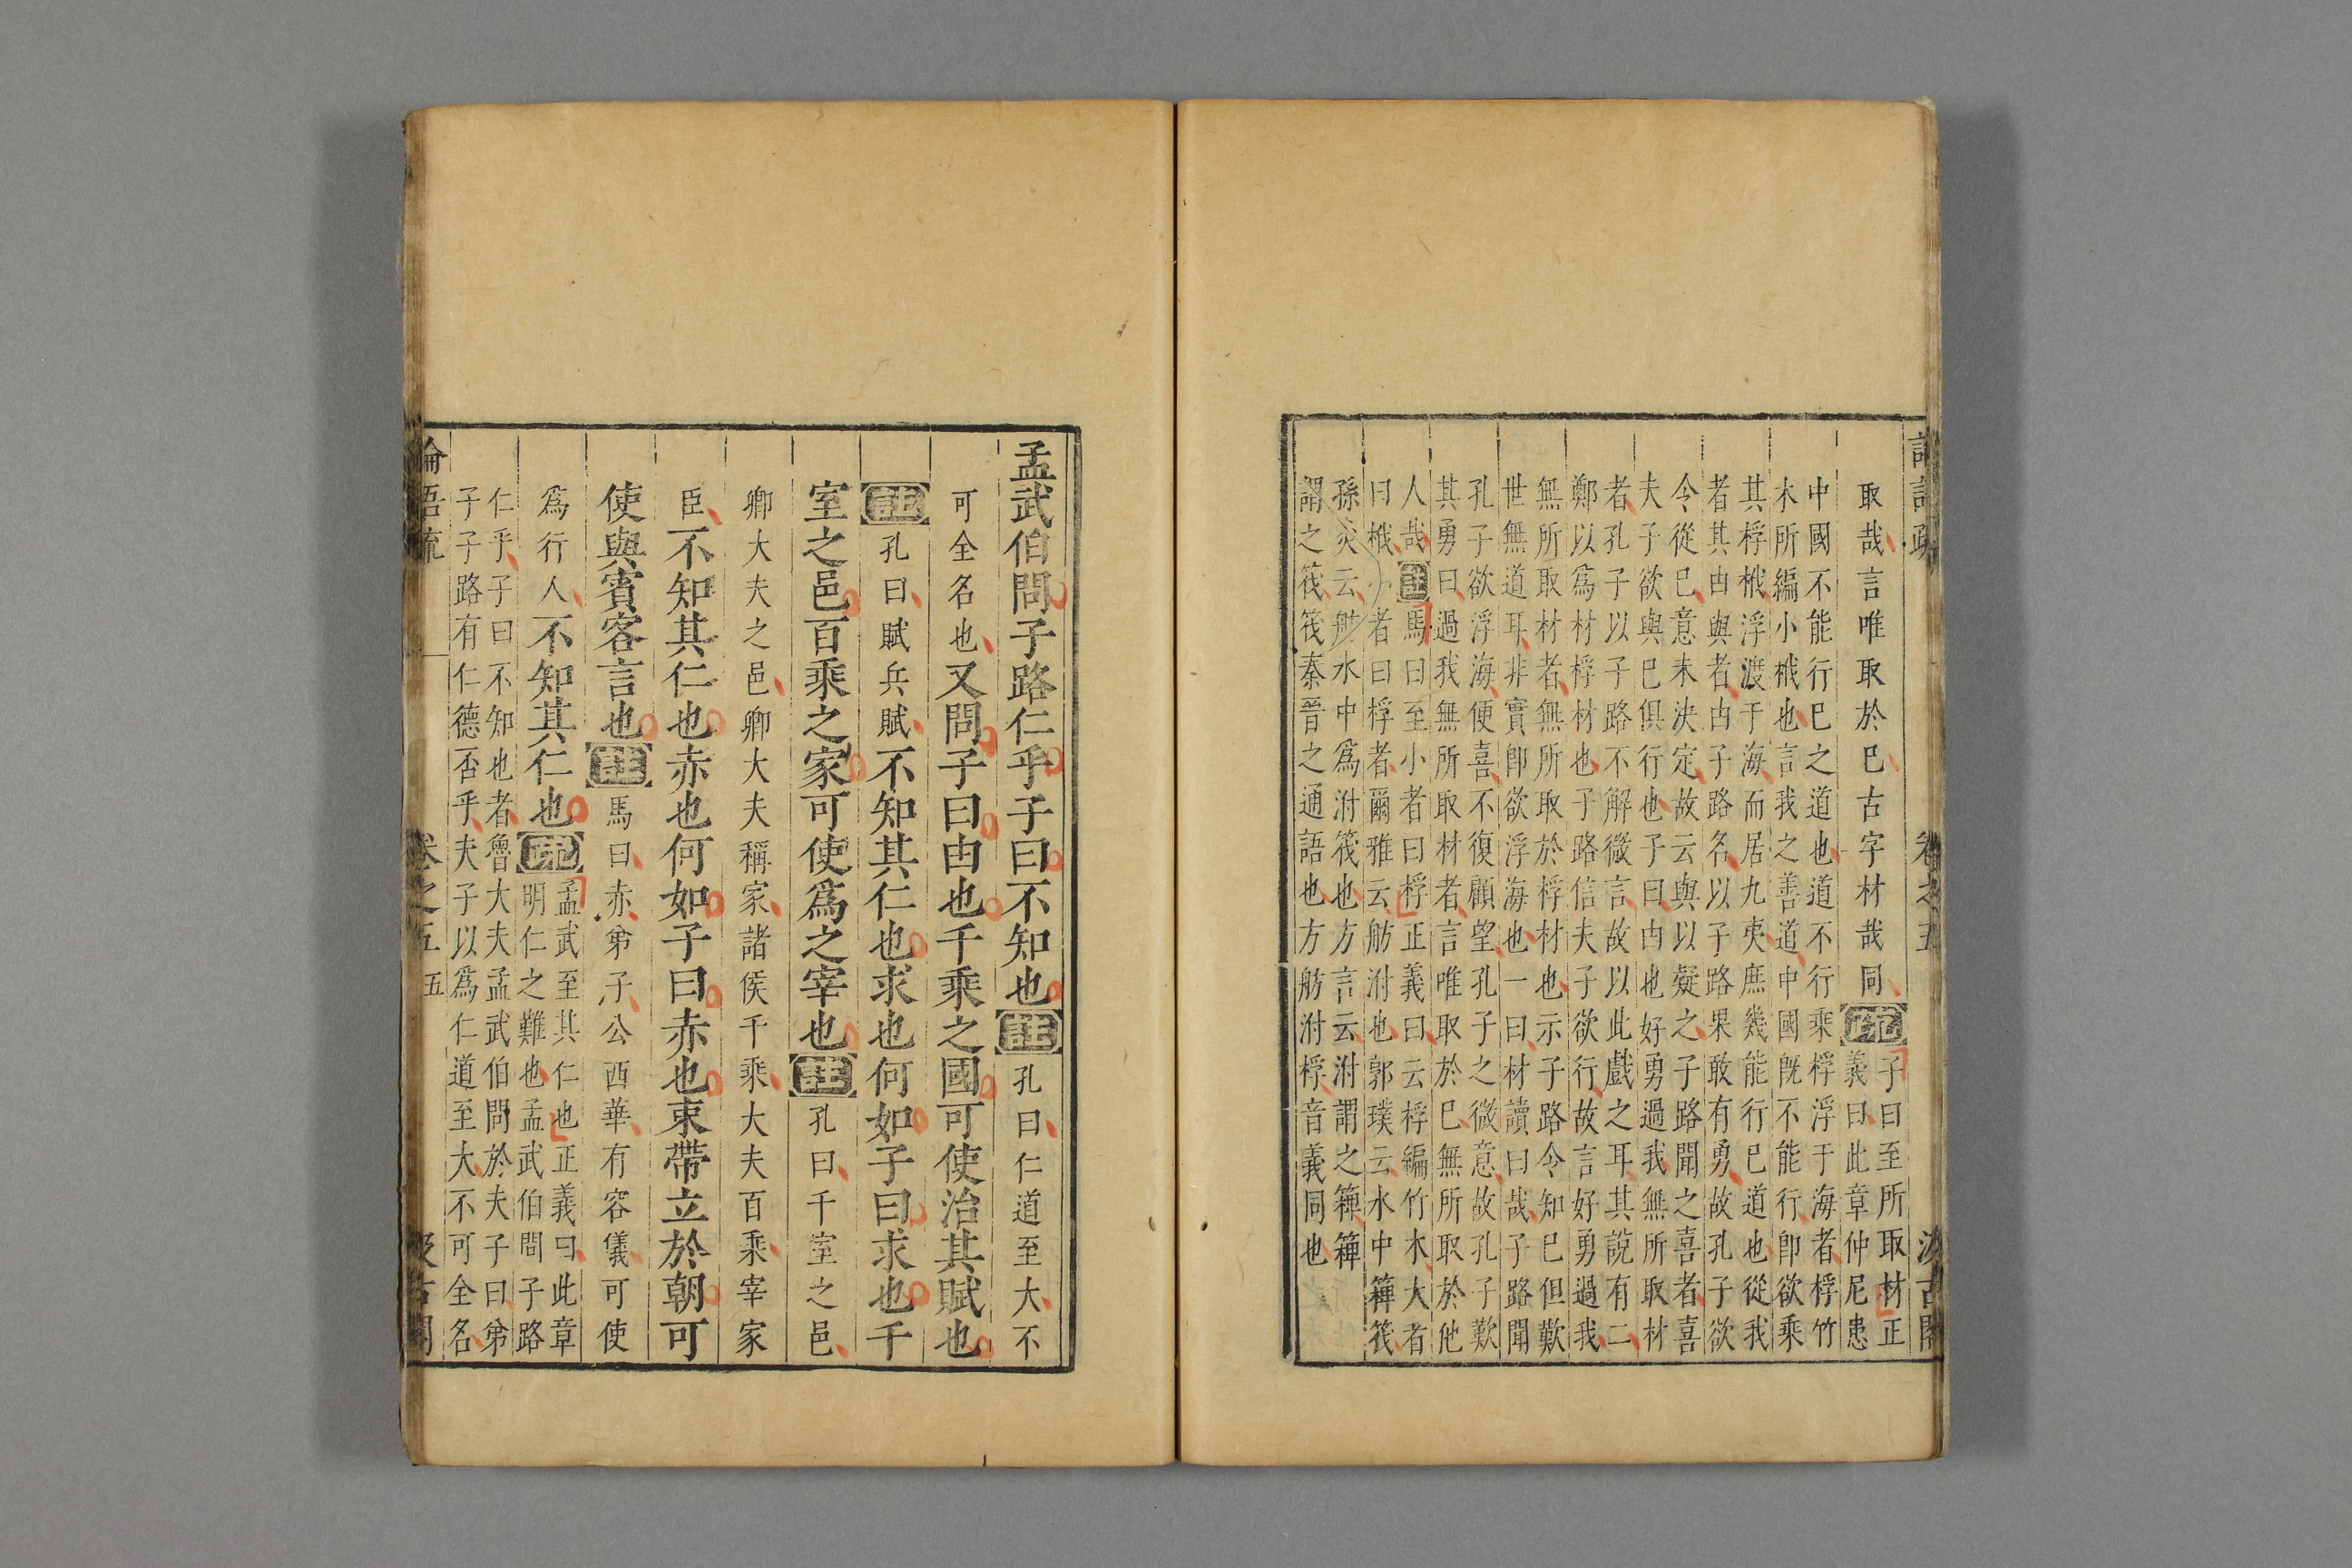 取哉言唯取於己古字材哉同疏子曰至所取材正
義曰此章仲尼患
中國不能行己之道也道不行乘桴浮于海者桴竹
木所編小栰也言我之善道中國既不能行即欲乘
其桴栰浮渡于海而居九夷庶幾能行己道也從我
者其由與者由子路名以子路果敢有勇故孔子欲
令從己意未決定故云與以疑之子路聞之喜者喜
夫子欲與己俱行也子曰由也好勇過我無所取材
者孔子以子路不解微言故以此戲之耳其說有二
鄭以為材桴材也子路信夫子欲行故言好勇過我
無所取材者無所取於桴材也示子路令知己但歎
世無道耳非實即欲浮海也一曰材讀曰哉子路聞
孔子欲浮海便喜不復顧望孔子之微意故孔子歎
其勇曰過我無所取材者言唯取於己無所取於他
人哉註馬曰至小者曰桴正義曰云桴編竹木大者
曰栰小者曰桴者爾雅云舫泭也郭璞云水中箄筏
孫炎云舫水中為泭筏也方言云泭謂之箄箄
謂之筏筏秦晉之通語也方舫泭桴音義同也
孟武伯問子路仁乎子曰不知也註孔曰仁道至大不
可全名也又問子曰由也千乘之國可使治其賦也
註孔曰賦兵賦不知其仁也求也何如子曰求也千
室之邑百乘之家可使爲之宰也註孔曰千室之邑
卿大夫之邑卿大夫稱家諸侯千乘大夫百乘宰家
臣不知其仁也赤也何如子曰赤也束帶立於朝可
使與賓客言也註馬曰赤弟子公西華有容儀可使
爲行人不知其仁也疏孟武至其仁也正義曰此章
明仁之難也孟武伯問子路
仁乎子曰不知也者魯大夫孟武伯問於夫子曰弟
子子路有仁德否乎夫子以爲仁道至大不可全名
論語疏 卷之五 五 汲古閣